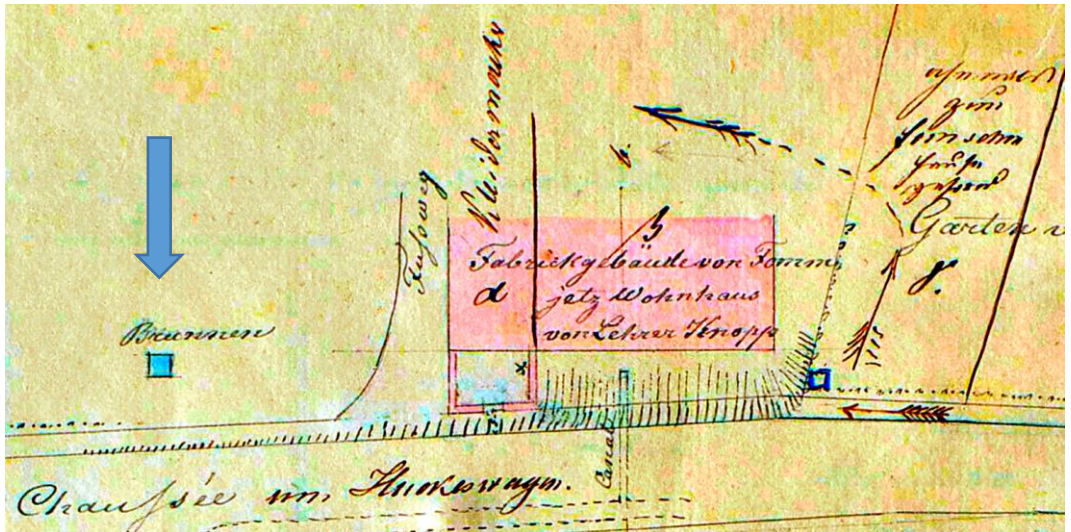 Brunnen
Fußweg
Kleidermacher
b.
B
Fabrickgebäude von Fomm
d
jetz Wohnhaus
von Lehrer Knopp
x
Canal
zum
Hause
Garten v
γ.
Chaussée von Huckeswagen.